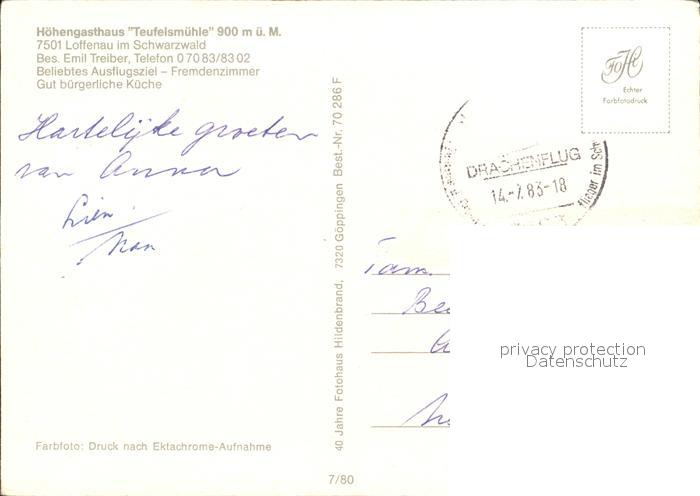 Höhengasthaus "Teufelsmühle" 900 m ü. M.
7501 Loffenau im Schwarzwald
Bes. Emil Treiber, Telefon 0 70 83/83 02
Beliebtes Ausflugsziel – Fremdenzimmer
Gut bürgerliche Küche
Hartelijke groeten
van Anna
Lien
Farbfoto: Druck nach Ektachrome-Aufnahme
40 Jahre Fotohaus Hildenbrand, 7320 Göppingen Best.-Nr. 70 286 F
7/80
Echter
Farbfotodruck
DRACHENFLUG
14.-7.83-18
flieger im Sch
Fam.
Be
privacy protection
Datenschutz